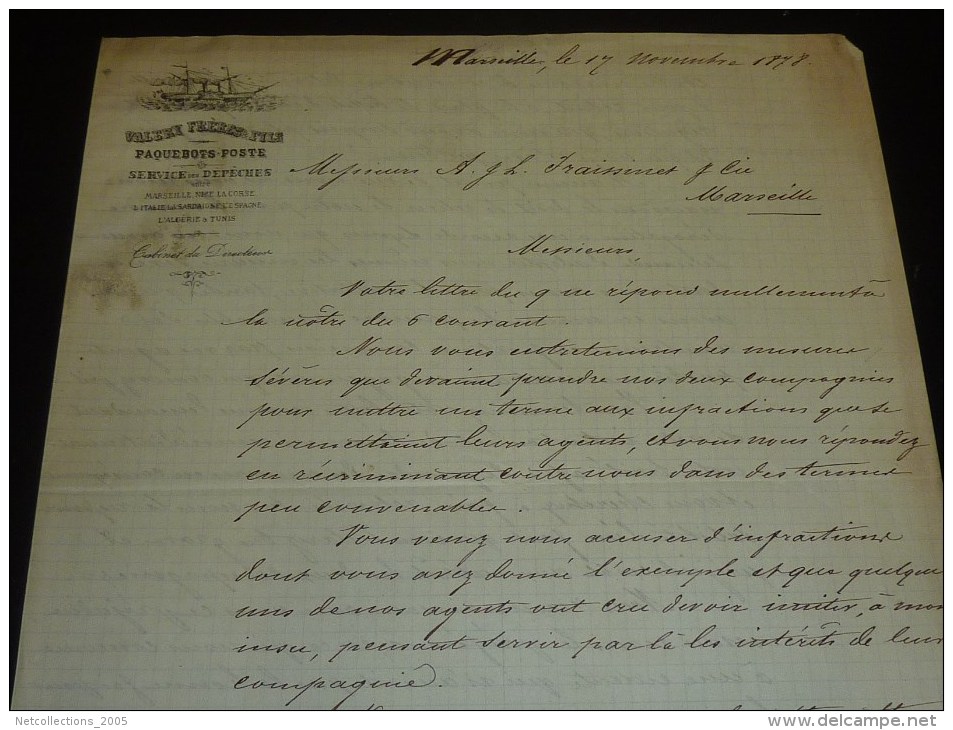 Marseille, le 17 Novembre 1878.
VALERY FRÈRES & FILS
PAQUEBOTS-POSTE
SERVICE DES DÉPÊCHES
entre
MARSEILLE, NICE LA CORSE
L'ITALIE LA SARDAIGNE L'ESPAGNE
L'ALGÉRIE & TUNIS
Cabinet du Directeur
Messieurs A. & L. Fraissinet & Cie
Marseille
Messieurs,
Votre lettre du 9 ne répond nullement à
la nôtre du 6 courant.
Nous vous entretenions des mesures
sévères que devaient prendre nos deux compagnies
pour mettre un terme aux infractions que se
permettaient leurs agents, et vous nous répondez
en récriminant contre nous dans des termes
peu convenables.
Vous venez nous accuser d'infractions
dont vous avez donné l'exemple et que quelques
uns de nos agents ont cru devoir imiter, à mon
insu, pensant servir par là les intérêts de leur
compagnie.
Netcollections_2005
delcampe.net